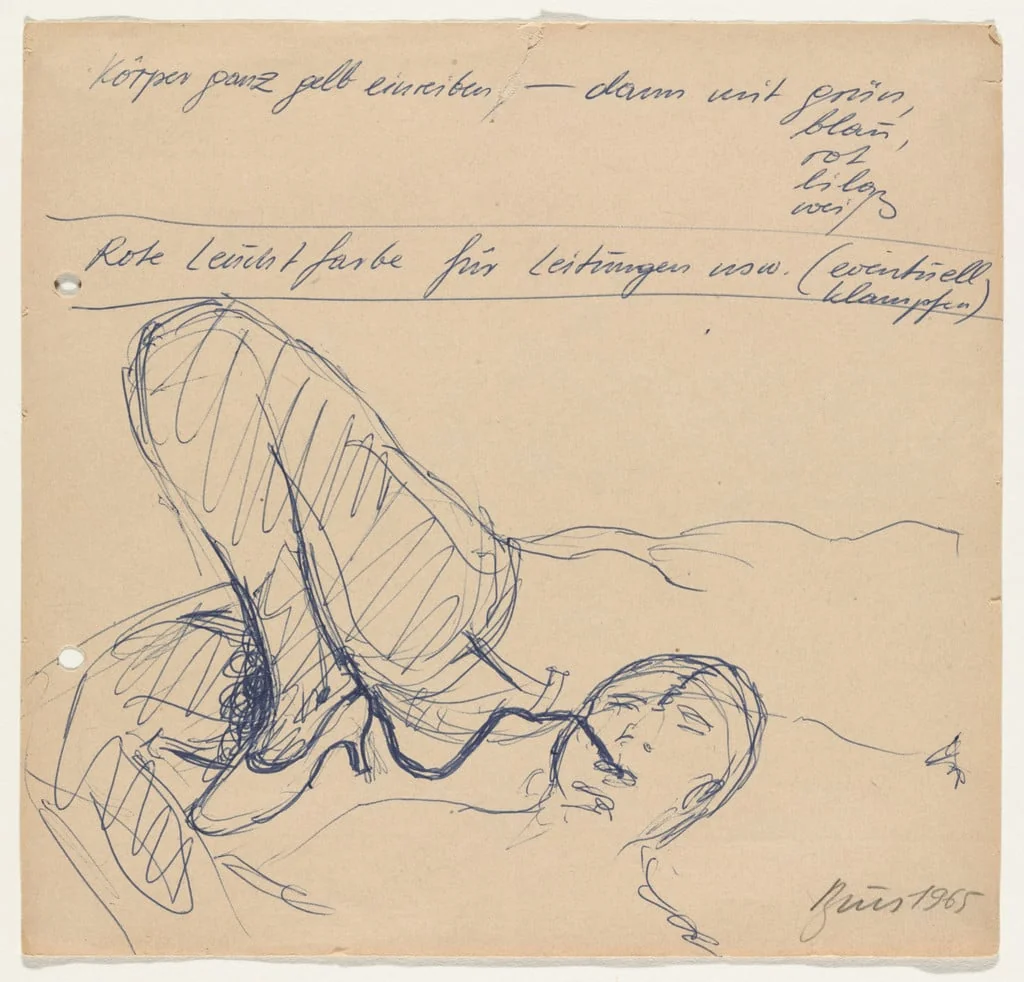 Körper ganz gelb einreiben — dann mit grün,
blau,
rot
lila,
weiß
Rote Leuchtfarbe für Leitungen usw. (eventuell
klampfen)
Brus 1965